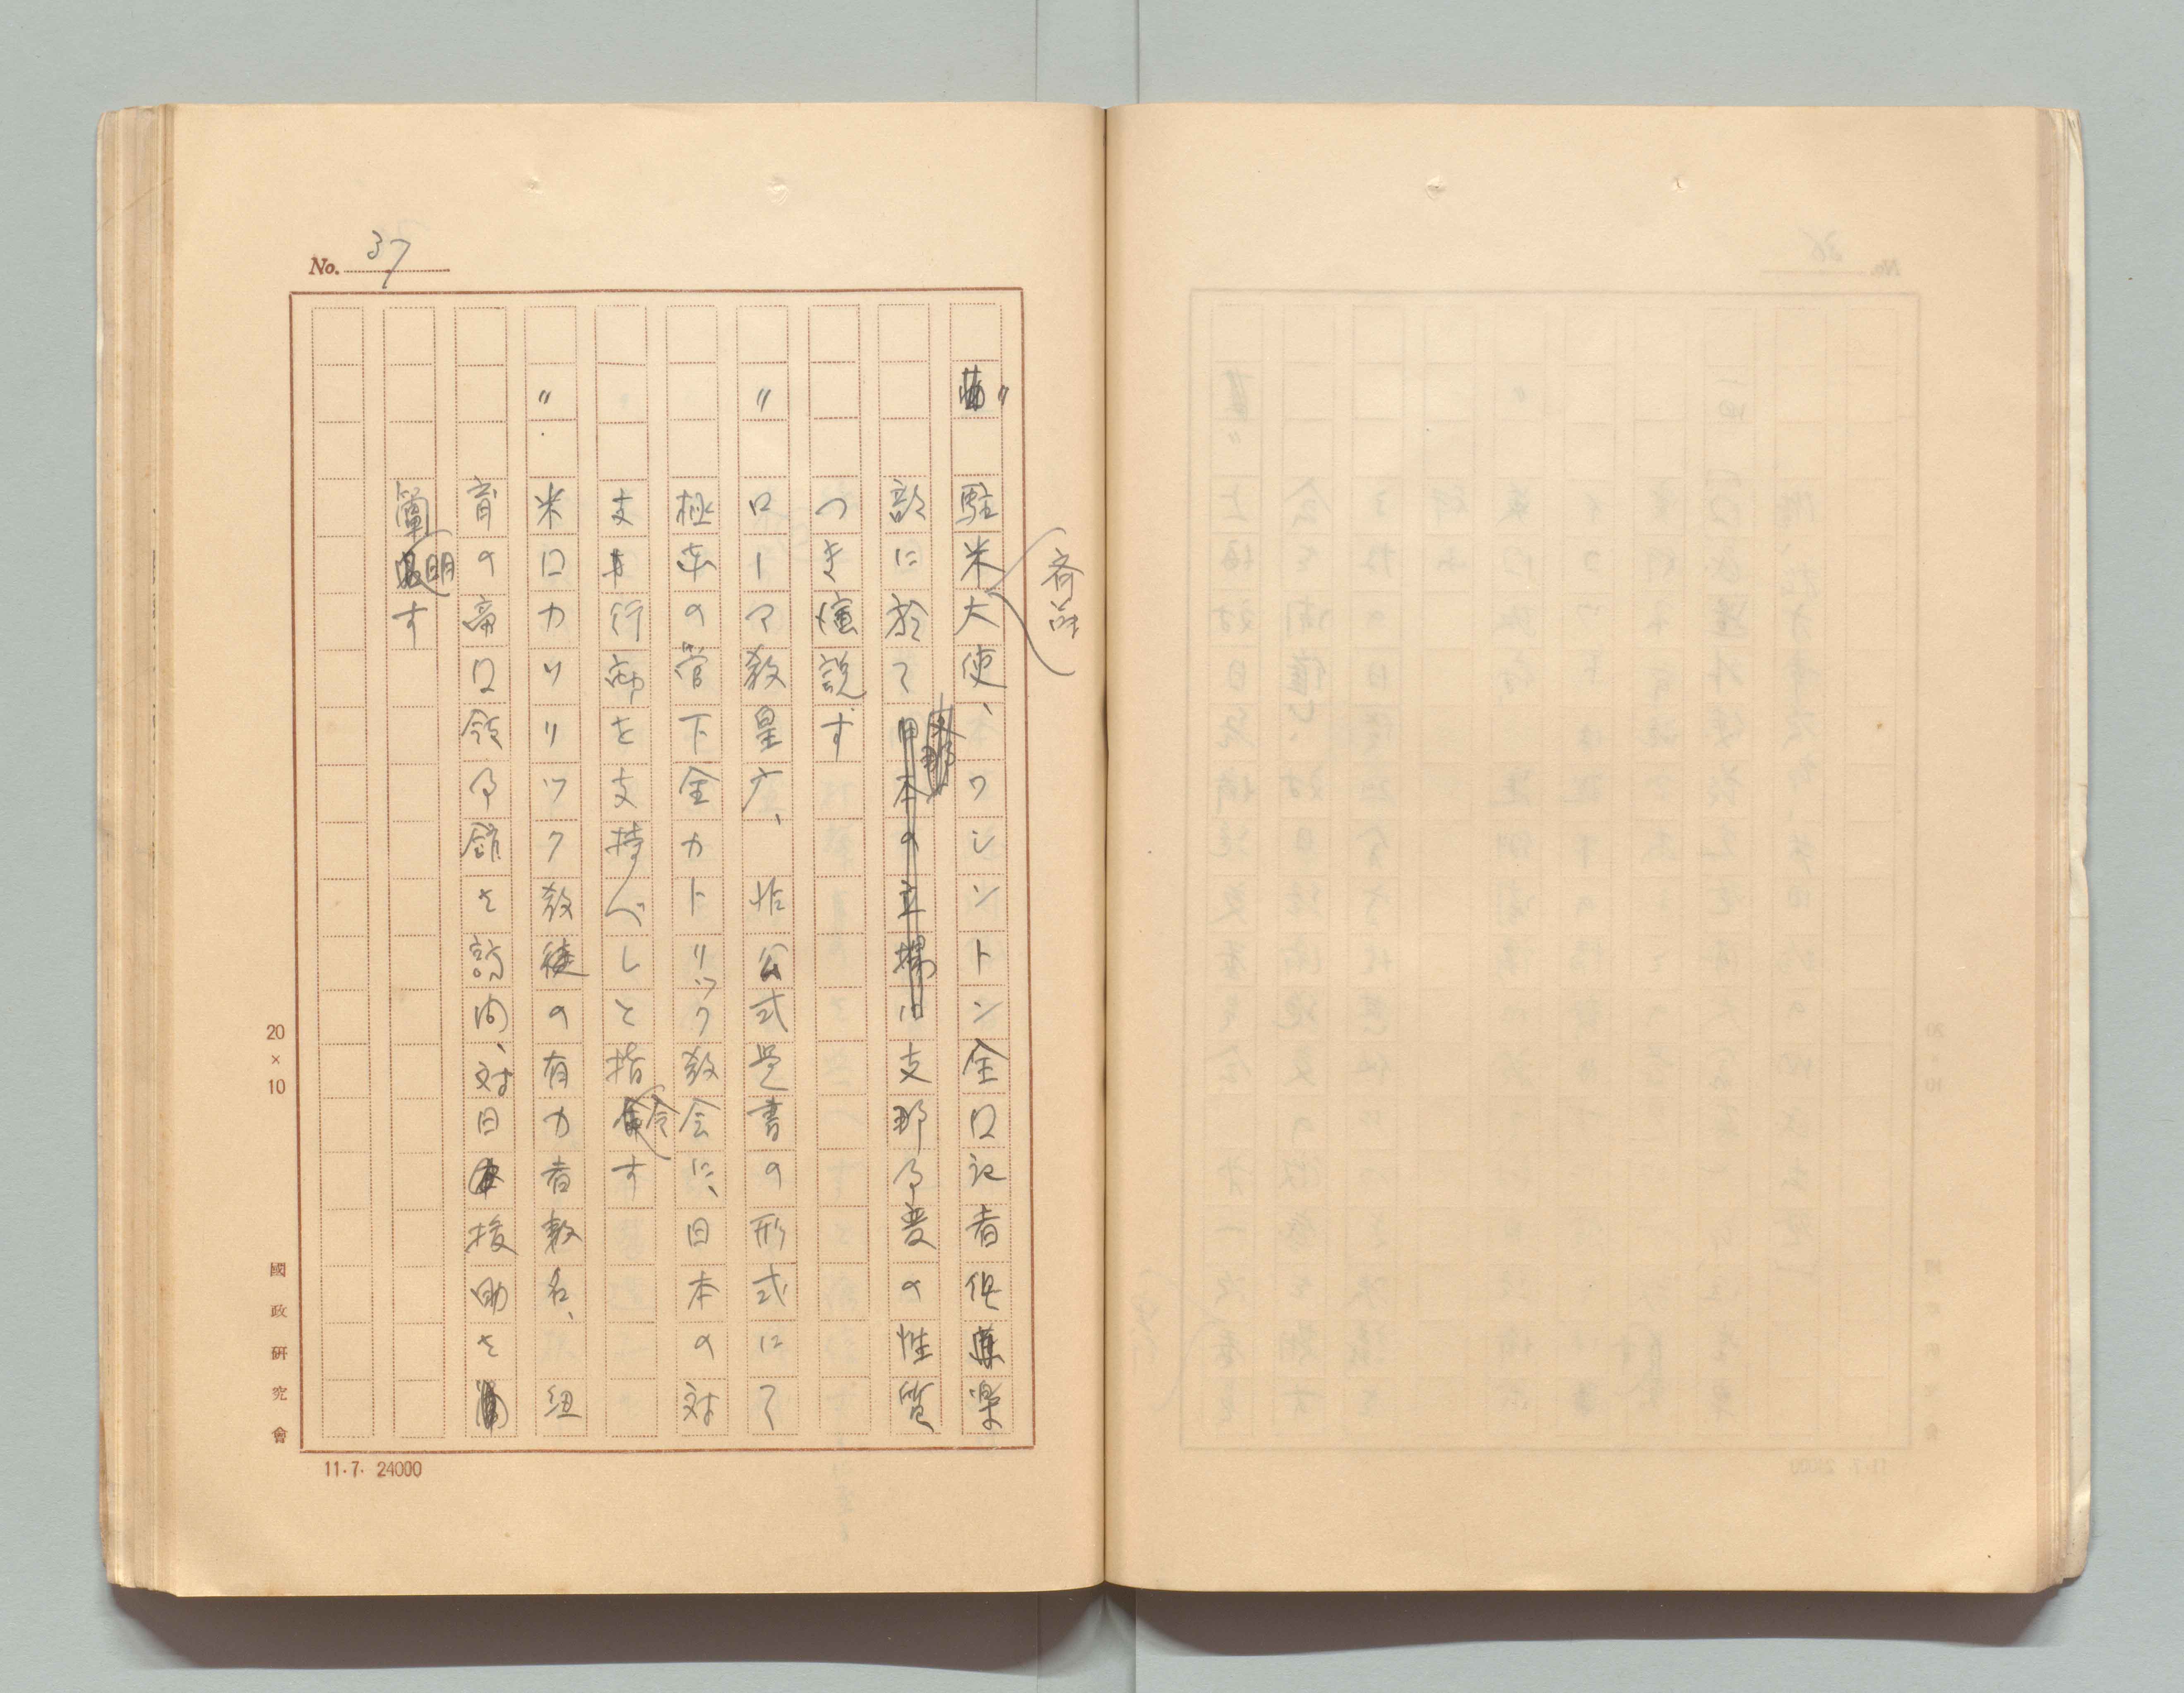 No. 37
〃 駐米大使、ワシントン全口記者倶楽
斉藤
部に於て支那事変の性質
つき演説す
〃 ローマ教皇庁、非公式覚書の形式にて
極東の管下全カトリック教会に、日本の対
支 行動を支持すべしと指令す
〃 米口カソリック教徒の有力者数名、紐
育の帝口領事館を訪問、対日援助を
闡明す
20×10
國政研究會
11.7. 24000